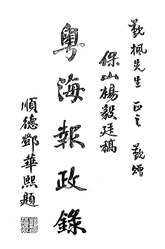 歎楓先生正之 歎贈
保山楊毅廷稿
粵海報政錄
順德鄧華熙題